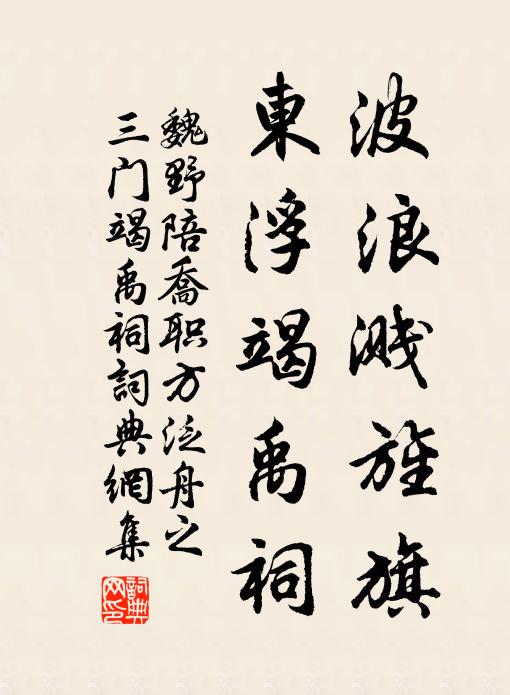 波浪溅旌旗
東浮竭禹祠
魏野陪喬职方泛舟之
三门竭禹祠詞典網集
詞典网印